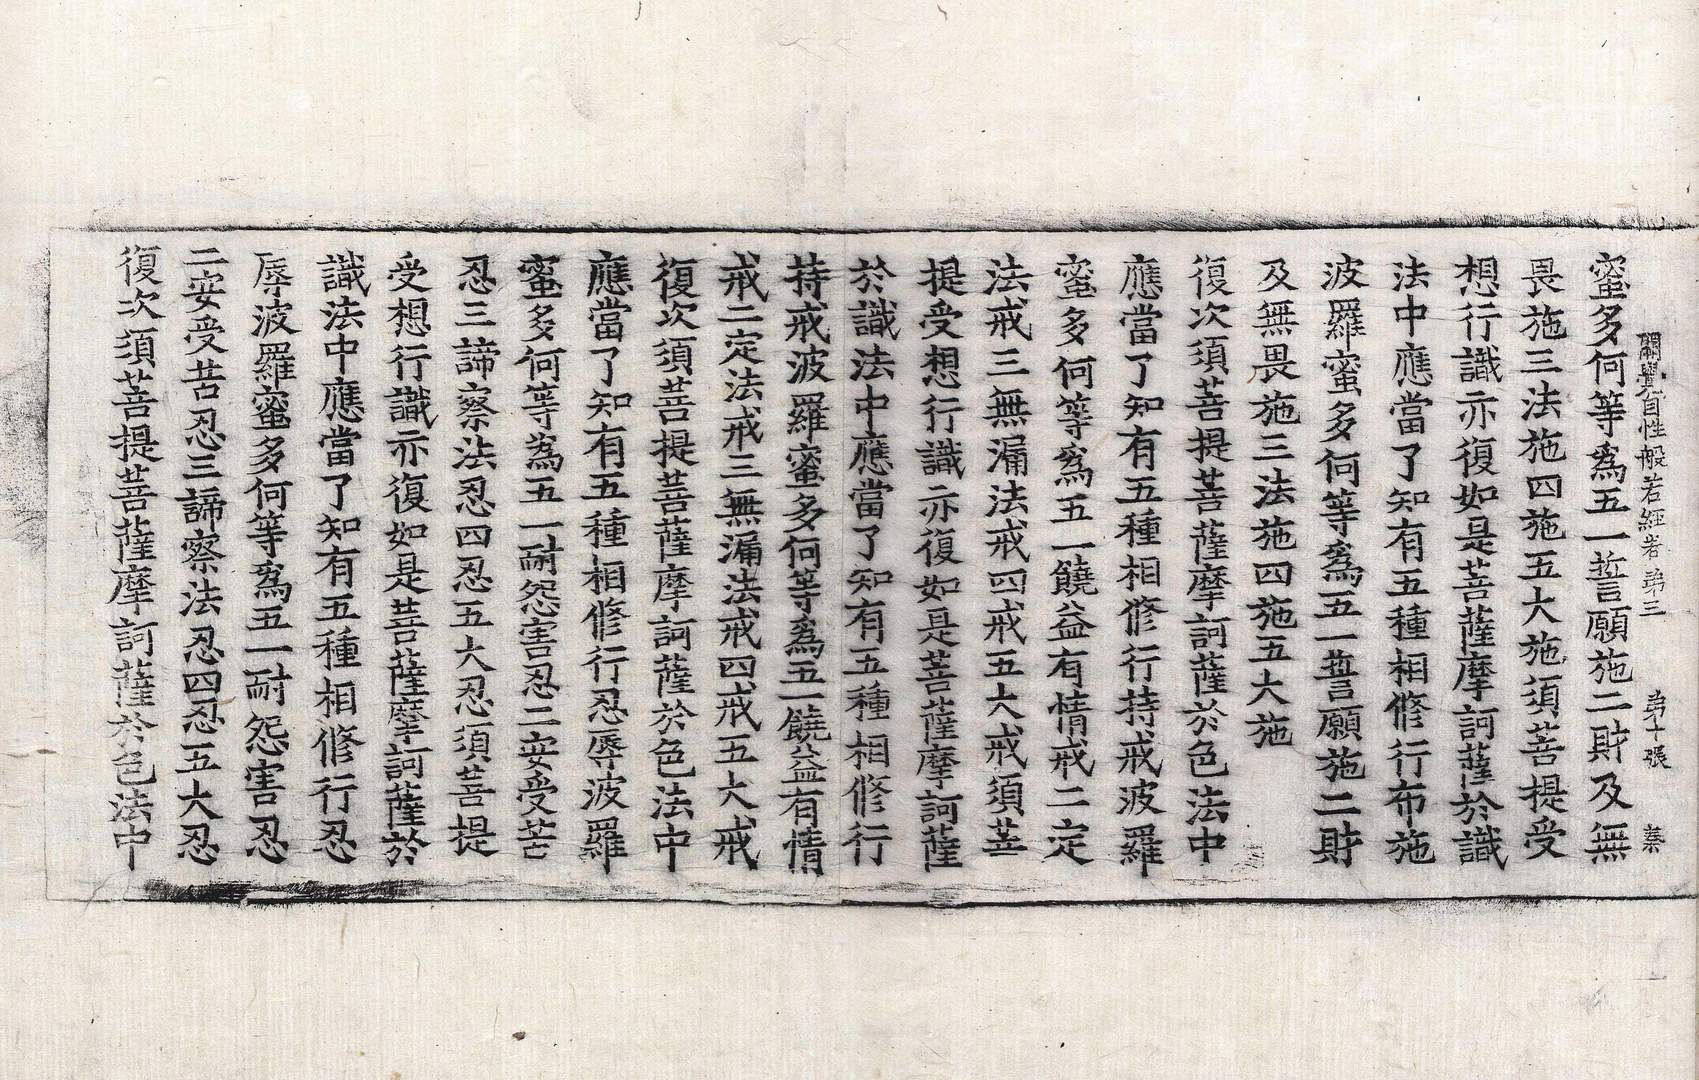 開覺自性般若經卷第三 第十張 秦
蜜多何等爲五一誓願施二財及無
畏施三法施四施五大施須菩提受
想行識亦復如是菩薩摩訶薩於識
法中應當了知有五種相修行布施
波羅蜜多何等爲五一誓願施二財
及無畏施三法施四施五大施
復次須菩提菩薩摩訶薩於色法中
應當了知有五種相修行持戒波羅
蜜多何等爲五一饒益有情戒二定
法戒三無漏法戒四戒五大戒須菩
提受想行識亦復如是菩薩摩訶薩
於識法中應當了知有五種相修行
持戒波羅蜜多何等爲五一饒益有情
戒二定法戒三無漏法戒四戒五大戒
復次須菩提菩薩摩訶薩於色法中
應當了知有五種相修行忍辱波羅
蜜多何等爲五一耐怨害忍二安受苦
忍三諦察法忍四忍五大忍須菩提
受想行識亦復如是菩薩摩訶薩於
識法中應當了知有五種相修行忍
辱波羅蜜多何等爲五一耐怨害忍
二安受苦忍三諦察法忍四忍五大忍
復次須菩提菩薩摩訶薩於色法中